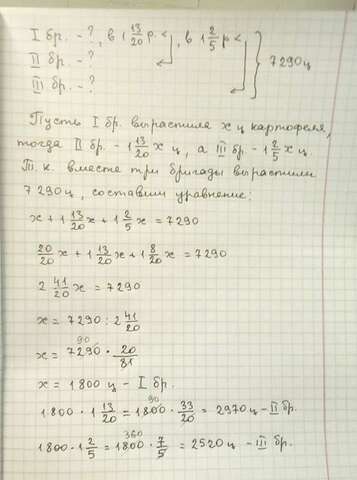 I бр. - ?, в 1 13/20 р. <, в 1 2/5 р <
II бр. - ?
III бр. - ?
7290 ц
Пусть I бр. вырастила x ц картофеля,
тогда II бр. - 1 13/20 x ц, а III бр. - 1 2/5 x ц.
Т. к. вместе три бригады вырастили
7 290 ц, составим уравнение:
x + 1 13/20 x + 1 2/5 x = 7290
20/20 x + 1 13/20 x + 1 8/20 x = 7290
2 41/20 x = 7290
x = 7290 : 2 41/20
90
x = 7290 · 20/81
x = 1800 ц - I бр.
90
1800 · 1 13/20 = 1800 · 33/20 = 2970 ц - II бр.
360
1800 · 1 2/5 = 1800 · 7/5 = 2520 ц - III бр.